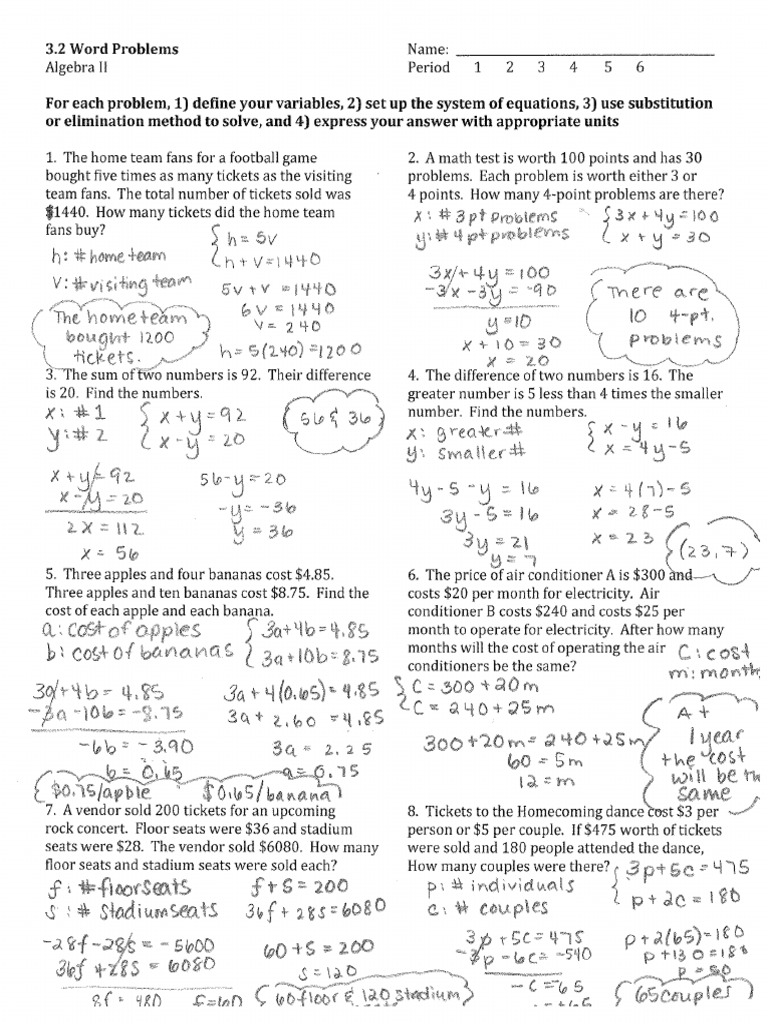 3.2 Word Problems
Name:
Algebra II
Period 1 2 3 4 5 6
For each problem, 1) define your variables, 2) set up the system of equations, 3) use substitution
or elimination method to solve, and 4) express your answer with appropriate units
1. The home team fans for a football game
bought five times as many tickets as the visiting
team fans. The total number of tickets sold was
1440. How many tickets did the home team
fans buy?
h = 5v
h + v = 1440
h: # home team
v: # visiting team
5v + v = 1440
6v = 1440
v = 240
h = 5(240) = 1200
The home team
bought 1200
tickets.
2. A math test is worth 100 points and has 30
problems. Each problem is worth either 3 or
4 points. How many 4-point problems are there?
x: # 3pt problems
y: # 4pt problems
3x + 4y = 100
x + y = 30
3x + 4y = 100
-3x - 3y = -90
y = 10
x + 10 = 30
x = 20
There are
10 4-pt.
problems
3. The sum of two numbers is 92. Their difference
is 20. Find the numbers.
x: # 1
y: # 2
x + y = 92
x - y = 20
56 & 36
x + y = 92
x - y = 20
2x = 112
x = 56
56 - y = 20
-y = -36
y = 36
4. The difference of two numbers is 16. The
greater number is 5 less than 4 times the smaller
number. Find the numbers.
x: greater #
y: smaller #
x - y = 16
x = 4y - 5
4y - 5 - y = 16
3y - 5 = 16
3y = 21
y = 7
x = 4(7) - 5
x = 28 - 5
x = 23
(23, 7)
5. Three apples and four bananas cost $4.85.
Three apples and ten bananas cost $8.75. Find the
cost of each apple and each banana.
a: cost of apples
b: cost of bananas
3a + 4b = 4.85
3a + 10b = 8.75
3a + 4b = 4.85
-3a - 10b = -8.75
-6b = -3.90
b = 0.65
3a + 4(0.65) = 4.85
3a + 2.60 = 4.85
3a = 2.25
a = 0.75
$0.75/apple $0.65/banana
6. The price of air conditioner A is $300 and
costs $20 per month for electricity. Air
conditioner B costs $240 and costs $25 per
month to operate for electricity. After how many
months will the cost of operating the air
conditioners be the same?
C: cost
m: month
C = 300 + 20m
C = 240 + 25m
300 + 20m = 240 + 25m
60 = 5m
12 = m
At
1 year
the cost
will be th
same
7. A vendor sold 200 tickets for an upcoming
rock concert. Floor seats were $36 and stadium
seats were $28. The vendor sold $6080. How many
floor seats and stadium seats were sold each?
f: # floor seats
s: # stadium seats
f + s = 200
36f + 28s = 6080
-28f - 28s = -5600
36f + 28s = 6080
8f = 480 f = 60
60 + s = 200
s = 120
60 floor & 120 stadium
8. Tickets to the Homecoming dance cost $3 per
person or $5 per couple. If $475 worth of tickets
were sold and 180 people attended the dance,
How many couples were there?
3p + 5c = 475
p + 2c = 180
p: # individuals
c: # couples
3p + 5c = 475
-3p - 6c = -540
-c = -65
p + 2(65) = 180
p + 130 = 180
p = 50
65 couples